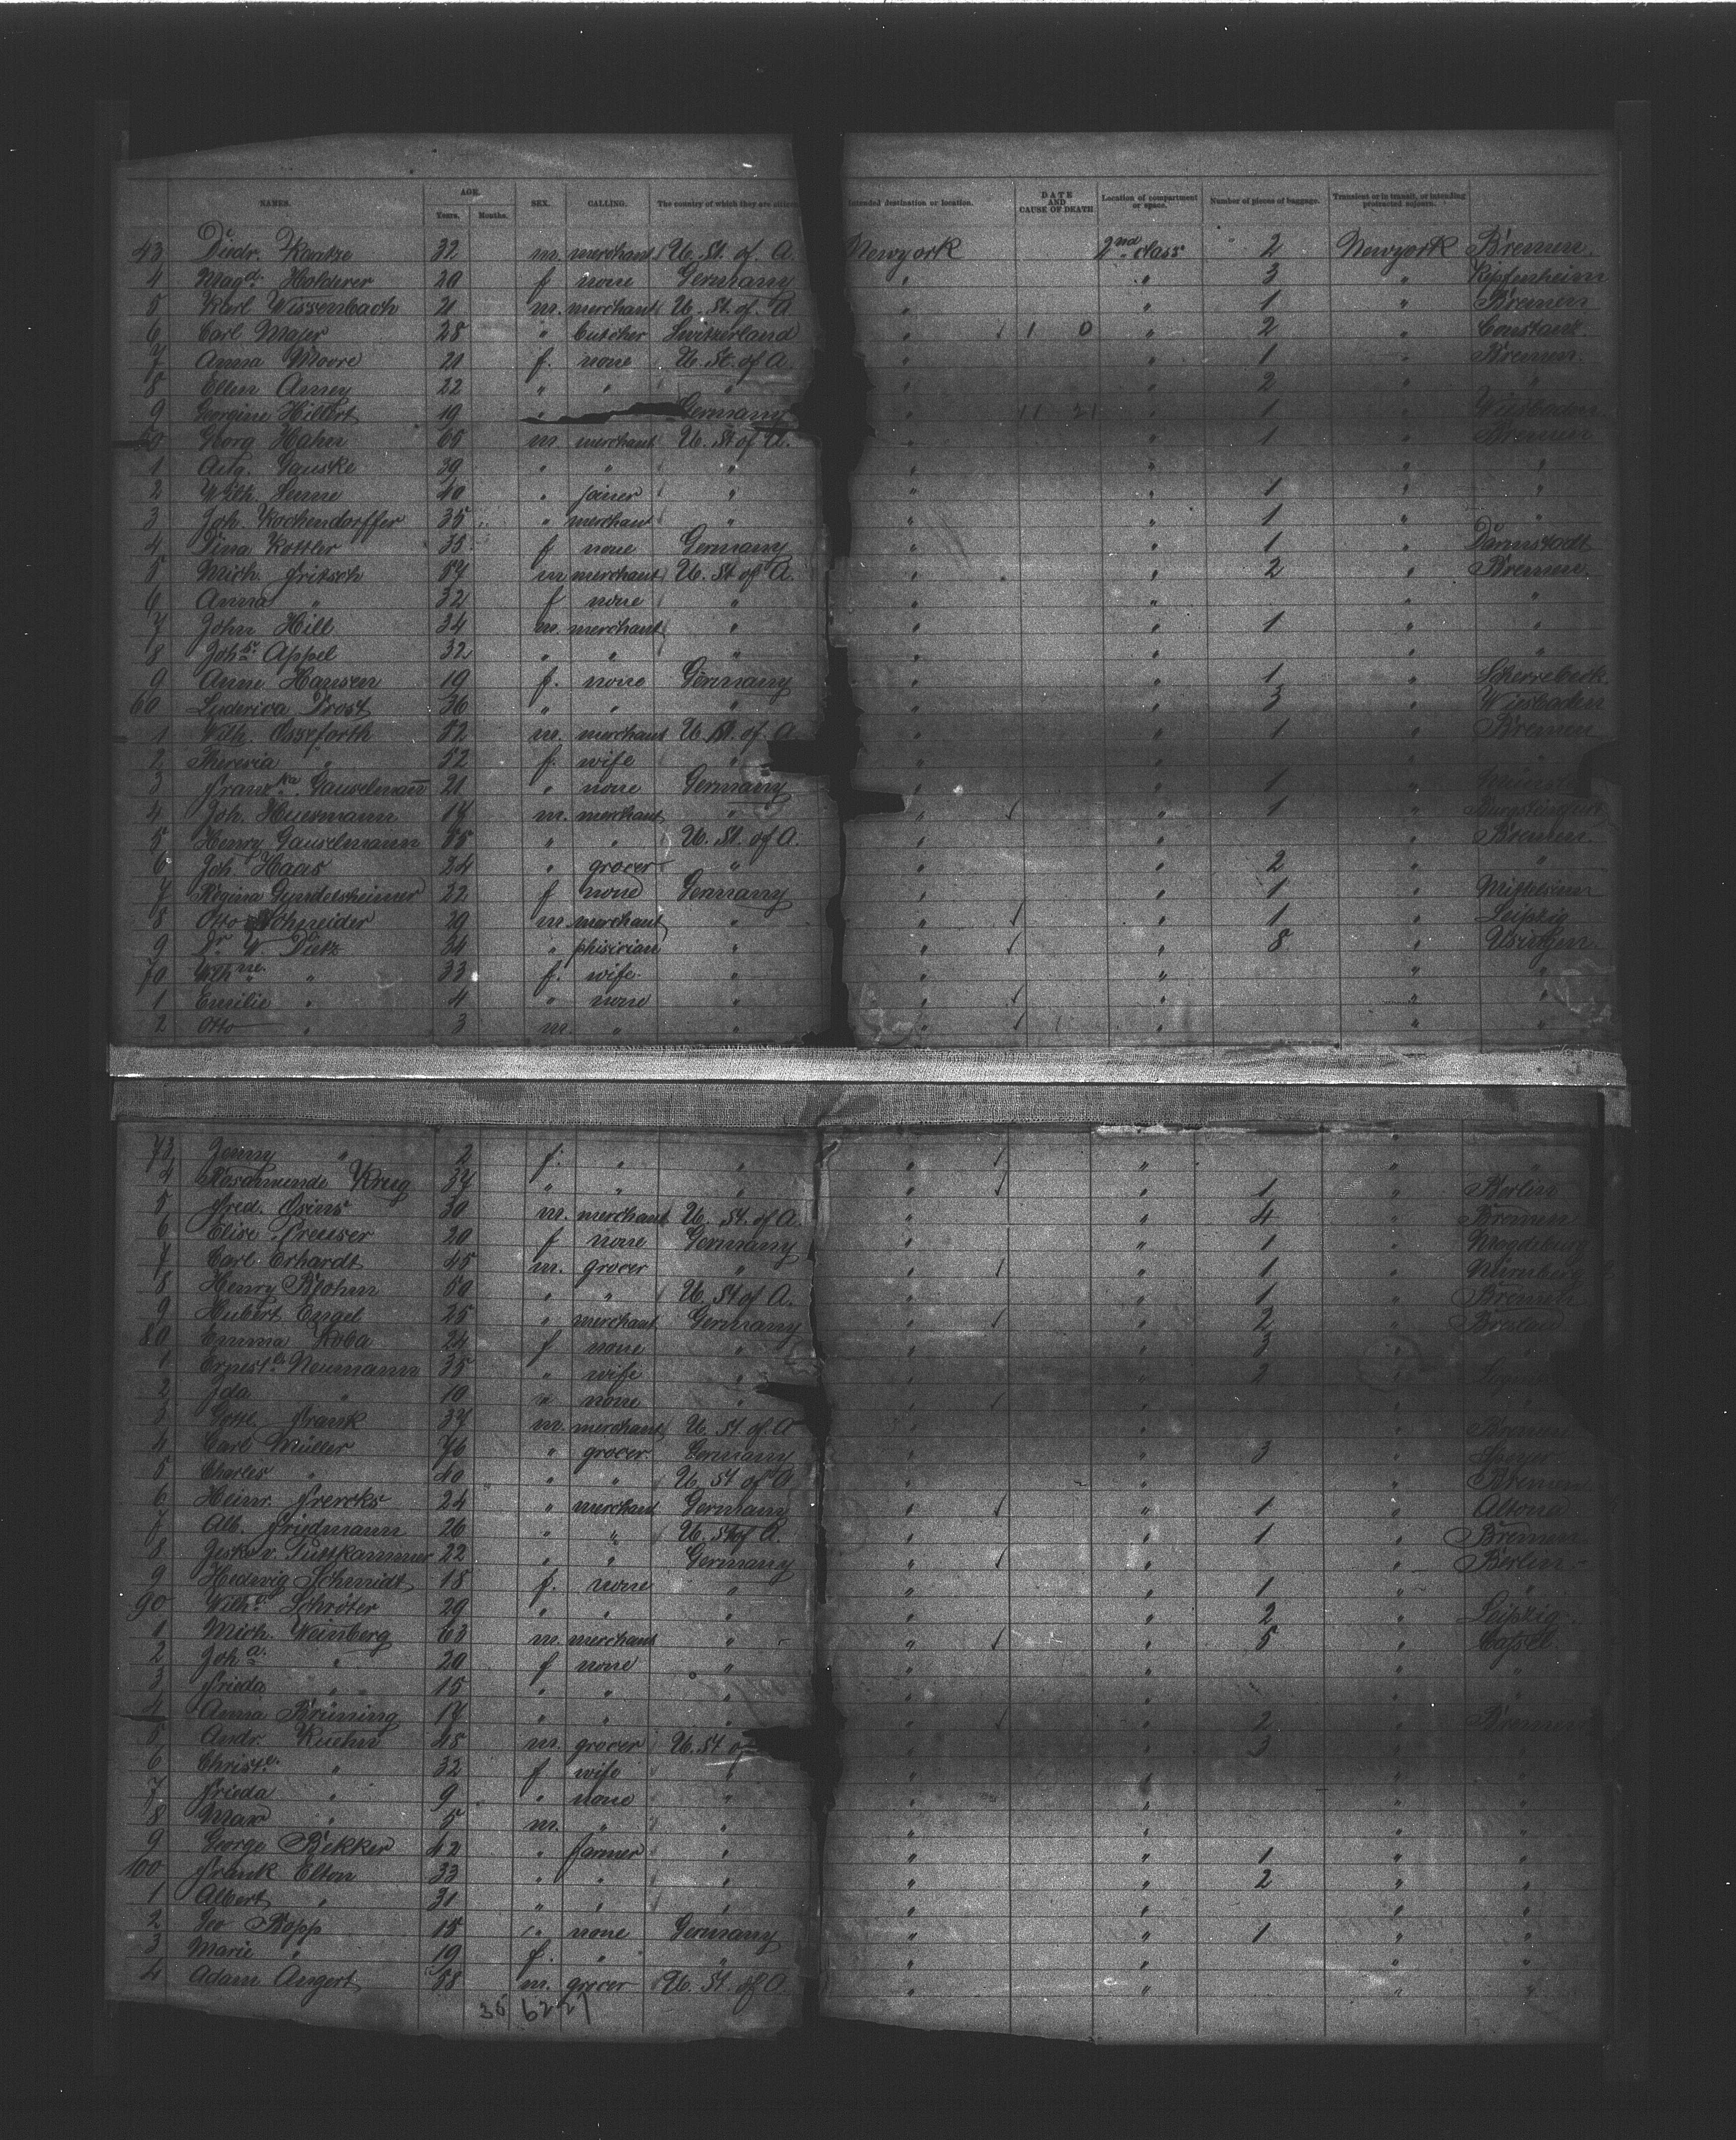 NAMES. AGE. Years. Months. SEX. CALLING. The country of which they are citizens Intended destination or location. DATE AND CAUSE OF DEATH Location of compartment or space. Number of pieces of baggage. Transient or in transit, or intending protracted sojourn.
43 Diedr. 32 m. merchant U. St. of A. Newyork 2nd class 2 Newyork Bremen.
4 Magd. Halderer 20 f none Germany " " 3 " Kipfenheim
5 Karl Wissenbach 21 m. merchant U. St. of A " " 1 " Bremen
6 Carl Majer 28 " butcher Switzerland " 1 0 " 2 " Constanz.
7 Anna Moore 21 f. none U. St. of A. " " 1 " Bremen.
8 Ellen Amey 22 " " " " " 2 " "
9 Georgine Hilbert 19 " Germany " 11 21 " 1 " Wiesbaden
50 Georg Hahn 65 m merchant U. St of A. " " 1 " Bremen
1 Aug. Gauske 39 " " " " " " "
2 Wilh. Lenne 40 " joiner " " " 1 " "
3 Joh. Kochendorffer 35 " merchant " " " 1 " "
4 Dina Kottler 35 f none Germany " " 1 " Darmstadt
5 Mich. Fritsch 57 m merchant U. St of A. " " 2 " Bremen
6 Anna " 32 f none " " " "
7 John Hill 34 m. merchant " " " 1 " "
8 Johs. Appel 32 " " " " " "
9 Anne Hansen 19 f. none Germany " " 1 " Scherrebeck.
60 Luderica Prost 36 " " " " " 3 " Wiesbaden
1 Wilh. Osseforth 52 m. merchant U. St. of A. " " 1 " Bremen
2 Theresia " 52 f. wife " " " " "
3 Franzka. Gauselmann 21 " none Germany " " 1 " Münster
4 Joh. Huesmann 17 m. merchant " " " 1 " Burgsteinfurt
5 Henry Gauselmann 55 " " U. St. of A. " " " Bremen.
6 Joh. Haas 24 " grocer " " " 2 " "
7 Regina Gundelsheimer 22 f none Germany " " 1 "
8 Otto Schneider 29 m. merchant " " " 1 " Leipzig
9 Dr W Dietz 34 " phisician " " " 8 " Usingen.
70 Wilhne. " 33 f. wife " " " " "
1 Emilie " 4 " none " " " " "
2 Otto " 3 m. " " " " " "
73 Jenny " 2 f. " " " " " "
4 Rosamunde Krug 34 " " " " " 1 " Berlin
5 Fred. Osins 30 m. merchant U. St. of A. " " 4 " Bremen
6 Elise Preuser 20 f none Germany " " 1 " Magdeburg
7 Carl Erhardt 45 m. grocer " " " 1 " Nürnberg
8 Henry Blohm 50 " " U. St of A. " " 1 " Bremen
9 Hubert Engel 25 " merchant Germany " " 2 " Breslau
80 Emma Koba 24 f none " " " 3 "
1 Ernest.e Neumann 35 " wife " " " 2 "
2 Ida " 10 " none " " " " "
3 Gottl. Frank 37 m. merchant U. St. of A " " " Bremen
4 Carl Müller 76 " grocer. Germany " " 3 " Speyer
5 Charles " 40 " " U. St of A " " " Bremen
6 Heinr. Frercks 24 " merchant Germany " " 1 " Altona
7 Alb. Friedmann 26 " " U. St of A. " " 1 " Bremen
8 Jesko v. Puttkammer 22 " " Germany " " " Berlin
9 Hedwig Schmidt 18 f. none " " " 1 " "
90 Wilh.e Schröter 29 " " " " " 2 " Leipzig.
1 Mich. Weinberg 63 m. merchant " " " 5 " Cassel.
2 Joh.a. " 20 f none " " " " "
3 Frieda " 15 " " " " " " "
4 Anna Brüning 17 " " " " " 2 " Bremen
5 Andr. Kuehn 48 m. grocer U. St of " " 3 " "
6 Christ.e. " 32 f wife " " " " "
7 Frieda " 9 " none " " " " "
8 Max " 5 m. " " " " " "
9 George Bekker 42 " farmer " " " 1 " "
100 Frank Elton 33 " " " " " 2 " "
1 Albert " 31 " " " " " " "
2 Geo Bopp 15 " none Germany " " 1 " "
3 Marie " 19 f. " " " " " "
4 Adam Angert 58 m. grocer U. St. of A. " " " "
38 6221